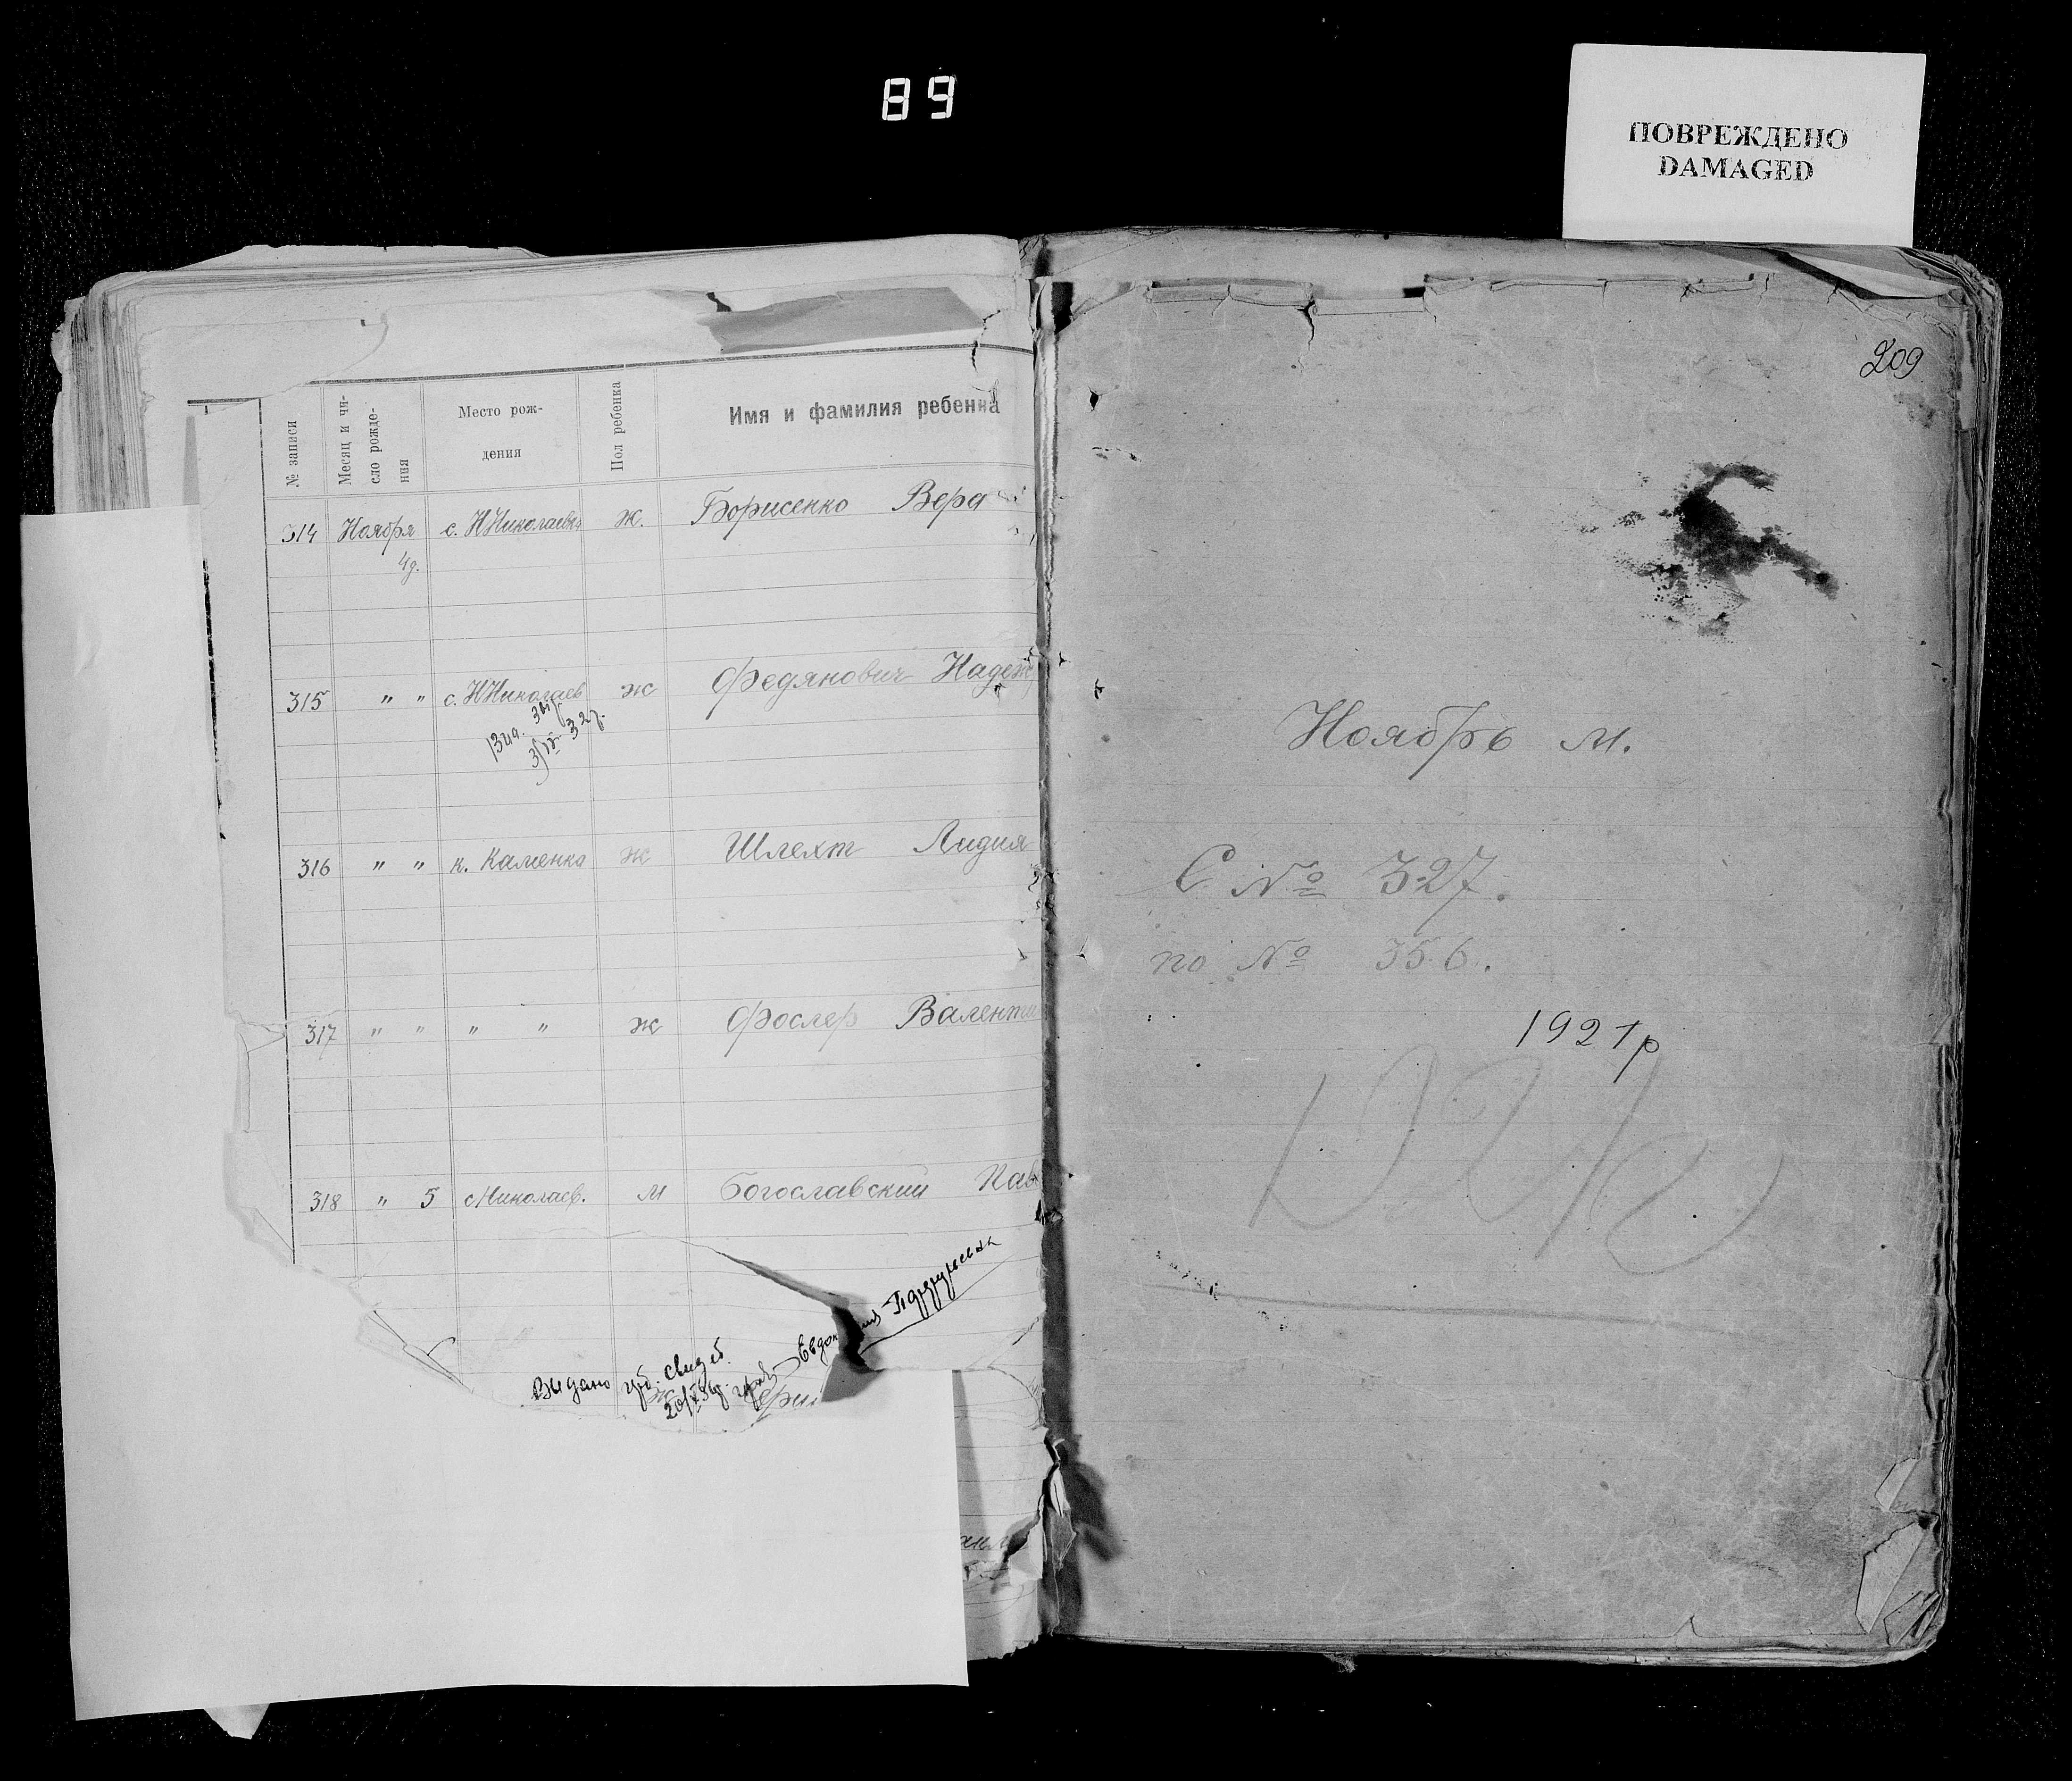 89
ПОВРЕЖДЕНО
DAMAGED
№ записи
Месяц и чи-
сло рожде-
ния
Место рож-
дения
Пол ребенка
Имя и фамилия ребенка
314 Ноября с. ННиколаевка ж. Борисенко Вера
4д.
315 " " с. ННиколаев ж Федянович Надеж
316 " " к. Каменка ж Шлехт Лидия
317 " " " " ж Фослер Валенти
318 " 5 с Николаев. м Богославский Пав
Выдано свидет.
209
Ноябрь м.
С № 327.
по № 356.
1921р